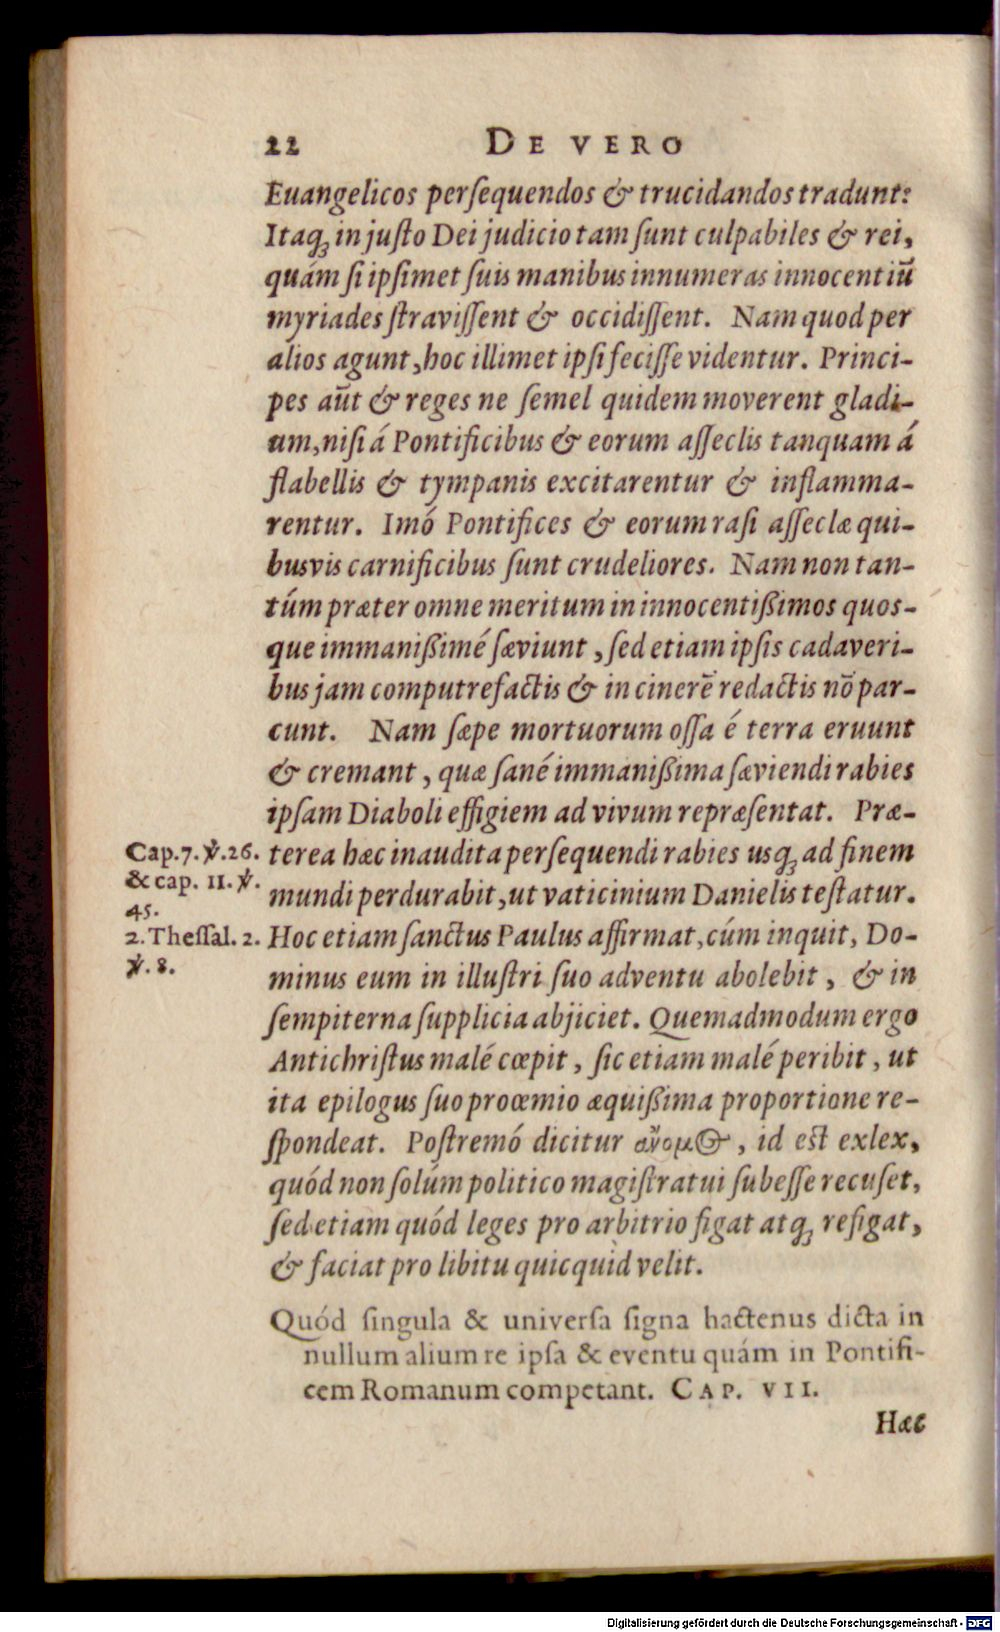 22 DE VERO
Euangelicos perſequendos & trucidandos tradunt:
Itaqꝫ in juſto Dei judicio tam ſunt culpabiles & rei,
quám ſi ipſimet ſuis manibus innumeras innocentiū
myriades ſtraviſſent & occidiſſent. Nam quod per
alios agunt, hoc illimet ipſi feciſſe videntur. Princi-
pes aūt & reges ne ſemel quidem moverent gladi-
um, niſi á Pontificibus & eorum aſſeclis tanquam á
flabellis & tympanis excitarentur & inflamma-
rentur. Imó Pontifices & eorum raſi aſſeclæ qui-
busvis carnificibus ſunt crudeliores. Nam non tan-
túm præter omne meritum in innocentißimos quos-
que immanißimé ſæviunt, ſed etiam ipſis cadaveri-
bus jam computrefactis & in cinerē redactis nō par-
cunt. Nam ſæpe mortuorum oſſa é terra eruunt
& cremant, quæ ſané immanißima ſæviendi rabies
ipſam Diaboli effigiem ad vivum repræſentat. Præ-
terea hæc inaudita perſequendi rabies usqꝫ ad finem
mundi perdurabit, ut vaticinium Danielis teſtatur.
Hoc etiam ſanctus Paulus affirmat, cúm inquit, Do-
minus eum in illuſtri ſuo adventu abolebit, & in
ſempiterna ſupplicia abjiciet. Quemadmodum ergo
Antichriſtus malé cœpit, ſic etiam malé peribit, ut
ita epilogus ſuo proœmio æquißima proportione re-
ſpondeat. Poſtremó dicitur ἄνομος, id eſt exlex,
quód non ſolúm politico magiſtratui ſubeſſe recuſet,
ſed etiam quód leges pro arbitrio figat atqꝫ refigat,
& faciat pro libitu quicquid velit.
Cap. 7. ℣. 26.
& cap. 11. ℣.
45.
2. Theſſal. 2.
℣. 8.
Quód ſingula & univerſa ſigna hactenus dicta in
nullum alium re ipſa & eventu quám in Pontifi-
cem Romanum competant. CAP. VII.
Hæc
Digitalisierung gefördert durch die Deutsche Forschungsgemeinschaft - DFG